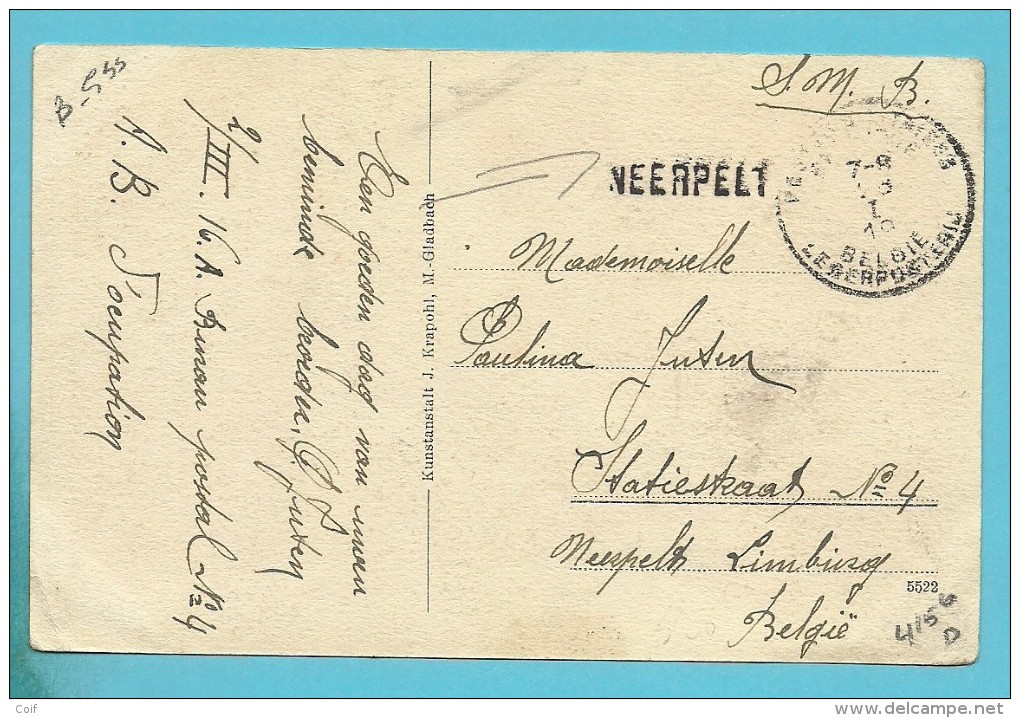 B-555
Een goeden dag van uwen
beminde broeder, P. Juten
2/III. 16. A. Bureau postal No 4
A. B. D'ocupation
Kunstanstalt J. Krapohl, M.-Gladbach
S. M. B.
NEERPELT
POSTES MILITAIRES
7-8
1
19
BELGIE
LEGERPOSTERIJ
Mademoiselle
Paulina Juten
Statiestraat No 4
Neerpelt Limburg
België
5522
4156
D
Coif
delcampe.net